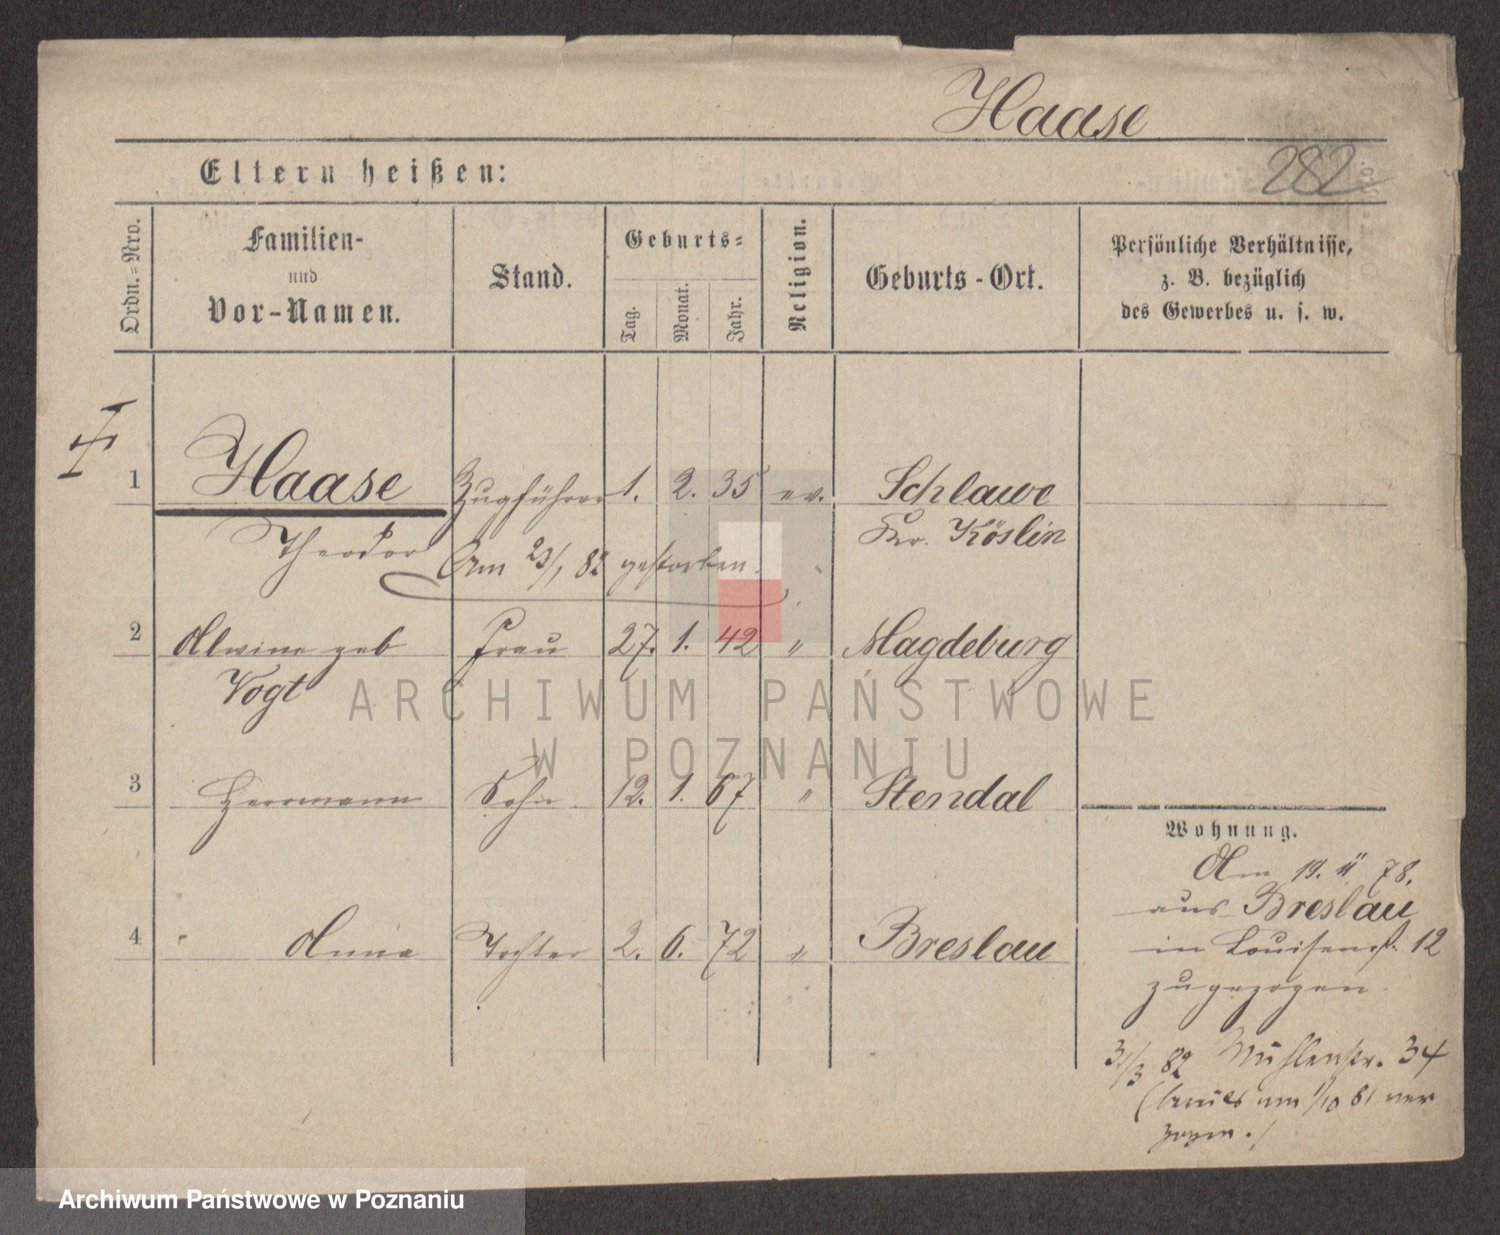 Haase
Eltern heißen:
282
Ordn.=Nro.
Familien-
und
Vor-Namen.
Stand.
Geburts=
Tag.
Monat.
Jahr.
Religion.
Geburts-Ort.
Persönliche Verhältnisse,
z. B. bezüglich
des Gewerbes u. s. w.
1 Haase Zugführer 1. 2. 35 ev. Schlawe
Theodor Kr. Köslin
Am 23/1 82 gestorben.
2 Alwine geb Frau 27. 1. 42 " Magdeburg
Vogt
ARCHIWUM PAŃSTWOWE
W POZNANIU
3 Herrmann Sohn 12. 1. 67 " Stendal
Wohnung.
Am 19. 11 78.
aus Breslau
in Louisenst. 12
zugezogen.
4 Anna Tochter 2. 6. 72 " Breslau
31/3 82 Mühlenstr. 34
um 1/10 81 ver
zogen.)
Archiwum Państwowe w Poznaniu